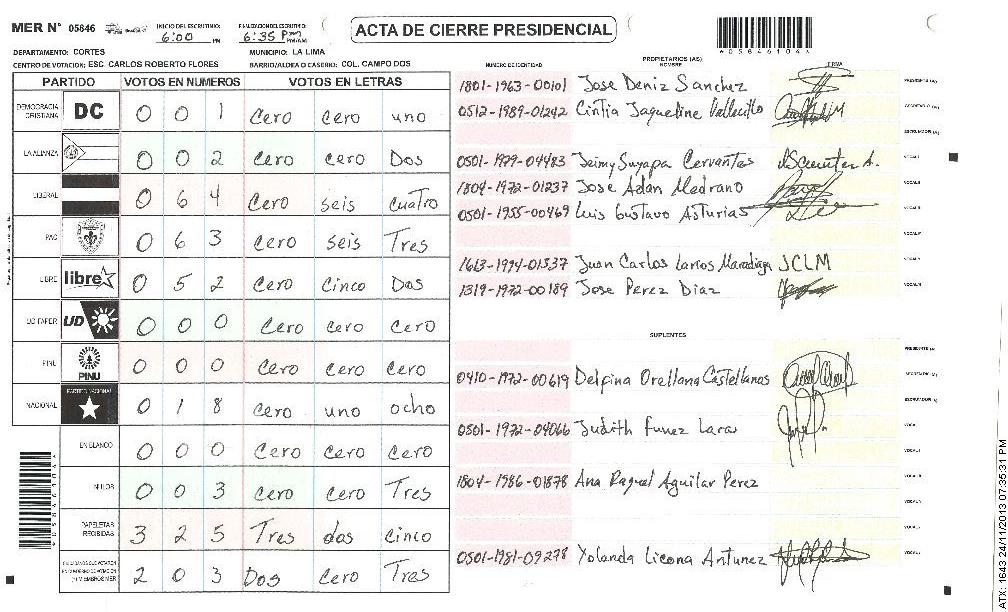 MER N° 05846
INICIO DEL ESCRUTINIO: 6:00 PM
FINALIZACION DEL ESCRUTINIO: 6:35 PM PM/AM
ACTA DE CIERRE PRESIDENCIAL
DEPARTAMENTO: CORTES MUNICIPIO: LA LIMA
CENTRO DE VOTACION: ESC. CARLOS ROBERTO FLORES BARRIO/ALDEA O CASERIO: COL. CAMPO DOS
PARTIDO VOTOS EN NUMEROS VOTOS EN LETRAS
DEMOCRACIA CRISTIANA DC 0 0 1 Cero cero uno
LA ALIANZA 0 0 2 Cero cero Dos
LIBERAL 0 6 4 Cero seis cuatro
PAC 0 6 3 Cero seis Tres
LIBRE libre 0 5 2 Cero Cinco Dos
UD FAPER UD 0 0 0 Cero cero cero
PINU PINU 0 0 0 Cero cero cero
NACIONAL PARTIDO NACIONAL 0 1 8 cero uno ocho
EN BLANCO 0 0 0 Cero Cero Cero
NULOS 0 0 3 Cero Cero Tres
PAPELETAS RECIBIDAS 3 2 5 Tres dos Cinco
2 0 3 Dos Cero Tres
NUMERO DE IDENTIDAD PROPIETARIOS (AS) NOMBRE FIRMA
1801-1963-00101 Jose Deniz Sanchez PRESIDENTE (A)
0512-1989-01242 Cintia Jaqueline Vallecillo SECRETARIO (A)
ESCRUTADOR (A)
0501-1979-04483 Jeimy Suyapa Cervantes
1804-1972-01237 Jose Adan Medrano
0501-1955-00469 Luis Gustavo Asturias
1613-1994-01337 Juan Carlos Larios Maradiaga JCLM
1319-1972-00189 Jose Perez Diaz
SUPLENTES
PRESIDENTE (A)
0410-1972-00619 Delfina Orellana Castellanos SECRETARIO (A)
ESCRUTADOR (A)
0501-1972-04066 Judith Funez Lara
1804-1986-01878 Ana Raquel Aguilar Perez
0501-1981-09278 Yolanda Licona Antunez
ATX: 1643 24/11/2013 07:35:31 PM